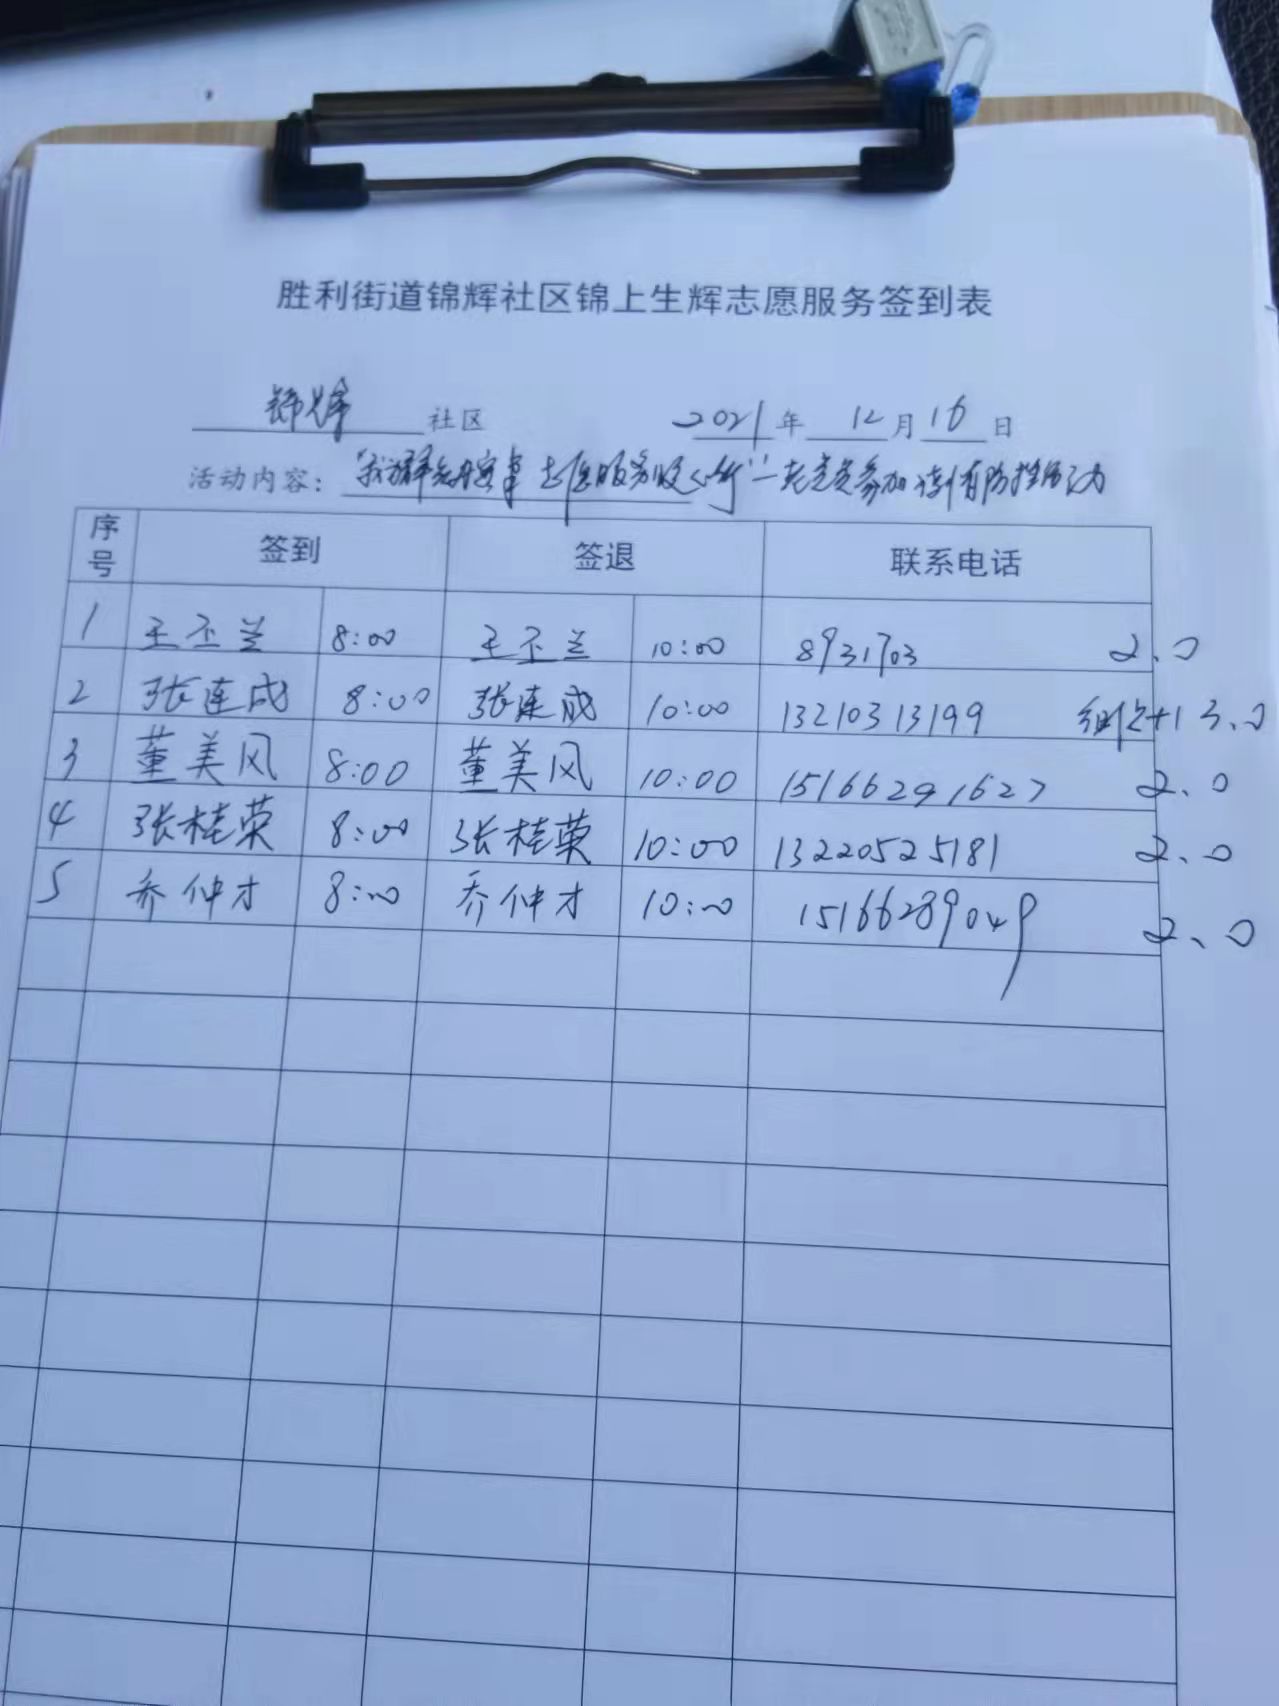 胜利街道锦辉社区锦上生辉志愿服务签到表
锦辉 社区 2021年 12月16日
活动内容：
序号 签到 签退 联系电话
1 王丕兰 8:00 王丕兰 10:00 8931703 2.0
2 张连成 8:00 张连成 10:00 13210313199 组织+1 3.0
3 董美风 8:00 董美风 10:00 15166291627 2.0
4 张桂荣 8:00 张桂荣 10:00 13220525181 2.0
5 乔仲才 8:00 乔仲才 10:00 15166289049 2.0